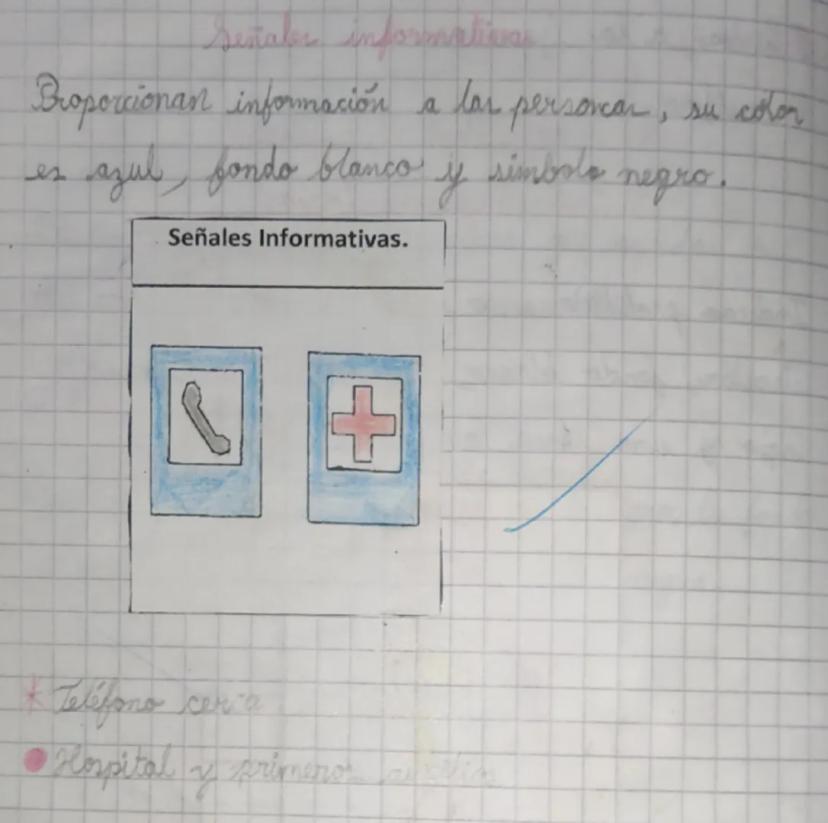 Señales informativas
Proporcionan información a las personas, su color
es azul, fondo blanco y simbolo negro.
Señales Informativas.
* Teléfono cerca
Hospital y primeros auxilios